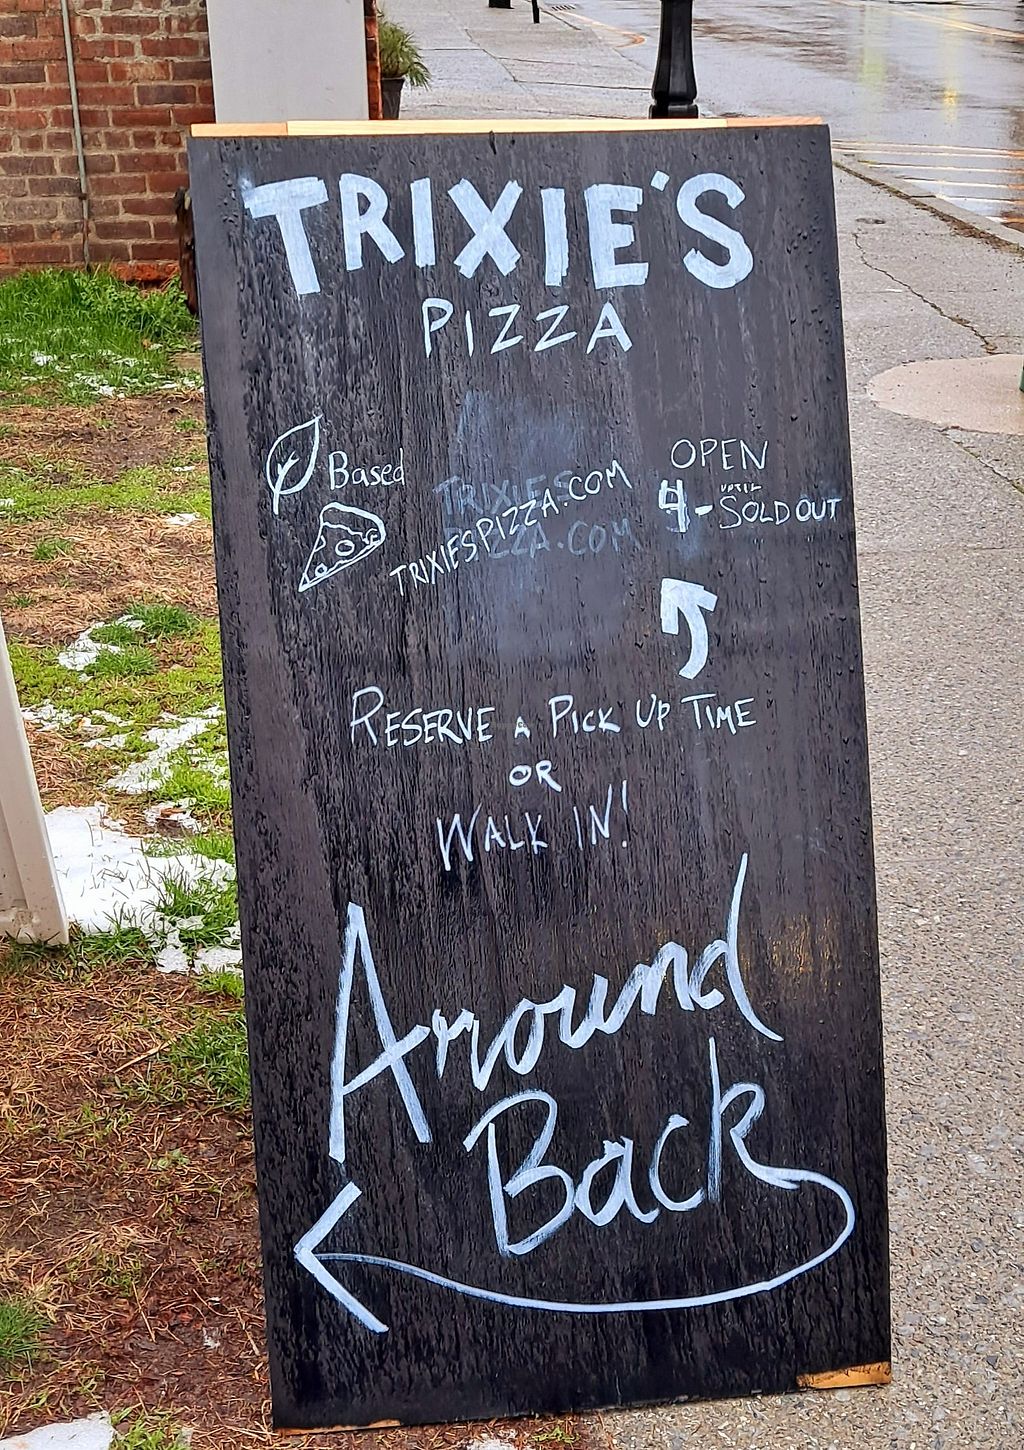 TRIXIE'S
PIZZA
Based
TRIXIESPIZZA.COM
TRIXIE'S
PIZZA.COM
OPEN
4-UNTIL SOLD OUT
RESERVE A PICK UP TIME
OR
WALK IN!
Around
Back